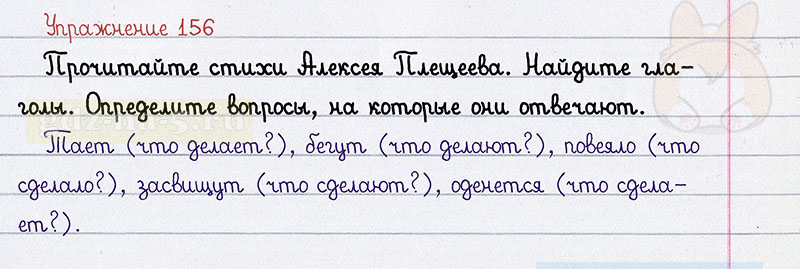 Упражнение 156
Прочитайте стихи Алексея Плещеева. Найдите гла-
голы. Определите вопросы, на которые они отвечают.
Тает (что делает?), бегут (что делают?), повеяло (что
сделало?), засвищут (что сделают?), оденется (что сдела-
ет?).